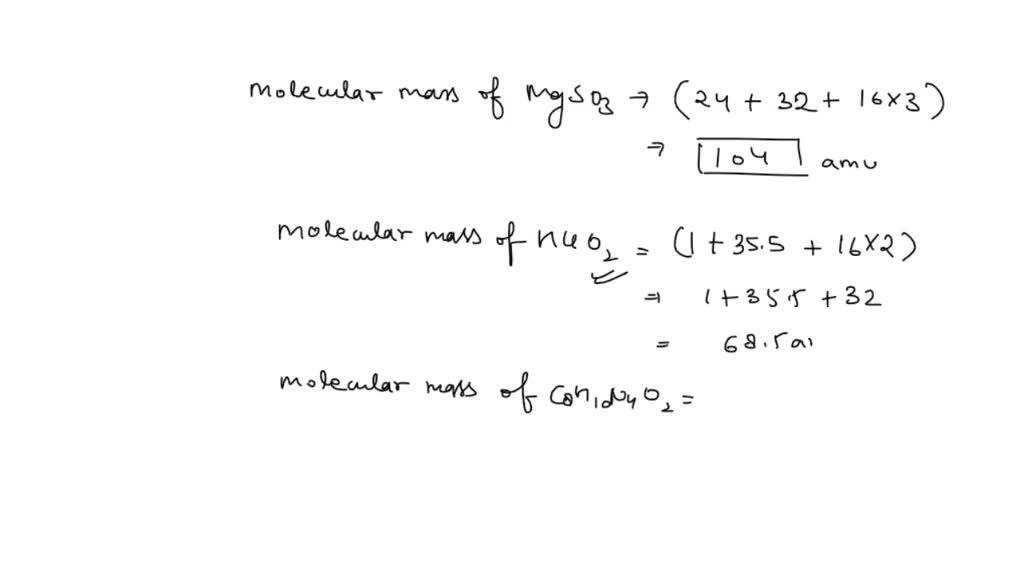 molecular mass of MgSO₃ → (24 + 32 + 16×3)
→ 104 amu
molecular mass of HClO₂ = (1 + 35.5 + 16×2)
⇒ 1 + 35.5 + 32
= 68.5 a
molecular mass of C₈H₁₀N₄O₂ =